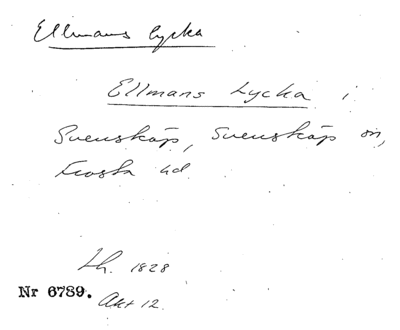 Ellmans lycka
Ellmans Lycka i
Svenskåp, Svenskåp sn,
Frosta hd
Lh. 1828
Nr 6789. Akt 12.